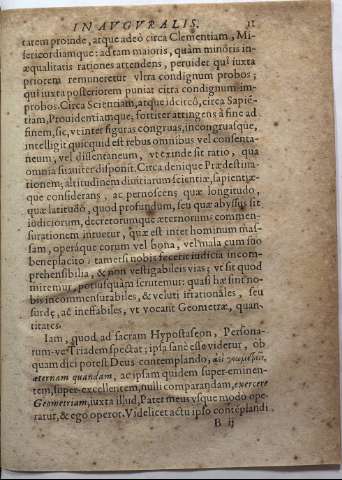 IN AVGVRALIS. 11
tatem proinde, atque adeò circa Clementiam, Mi-
sericordiamque: ad tam maioris, quàm minoris in-
æqualitatis rationes attendens, peruidet qui iuxta
priorem remuneretur vltra condignum probos;
qui iuxta posteriorem puniat citra condignum im-
probos. Circa Scientiam, atque idcircò, circa Sapiē-
tiam, Prouidentiamque; fortiter attingens à fine ad
finem, sic, vt inter figuras congruas, incongruasque,
intelligit quicquid est rebus omnibus vel consenta-
neum, vel dissentaneum, vt exinde sit ratio, qua
omnia suauiter disponit. Circa denique Prædestina-
tionem; altitudinem diuitiarum scientiæ, sapientiæ-
que considerans, ac pernoscens quæ longitudo,
quæ latitudo, quod profundum, seu quæ abyssus sit
iudiciorum, decretorumque æternorum; commen-
surationem intuetur, quæ est inter hominum mas-
sam, operáque eorum vel bona, vel mala cum suo
beneplacito: tametsi nobis fecerit iudicia incom-
prehensibilia, & non vestigabileis vias; vt sit quod
miremur, potiusquàm scrutemur: quasi hæ sint no-
bis incommensurabiles, & veluti irrationales, seu
surdæ, ac ineffabiles, vt vocant Geometræ, quan-
titates.
Iam, quod ad sacram Hypostaseon, Persona-
rum-ve Triadem spectat; ipsa sanè esse videtur, ob
quam dici potest Deus contemplando, ἀεὶ γεωμετρεῖν,
æternam quandam, ac ipsam quidem super-eminen-
tem, super-excellentem, nulli comparandam, exercere
Geometriam, iuxta illud, Pater meus vsque modo ope-
ratur, & ego operor. Videlicet actu ipso contēplandi
B ij